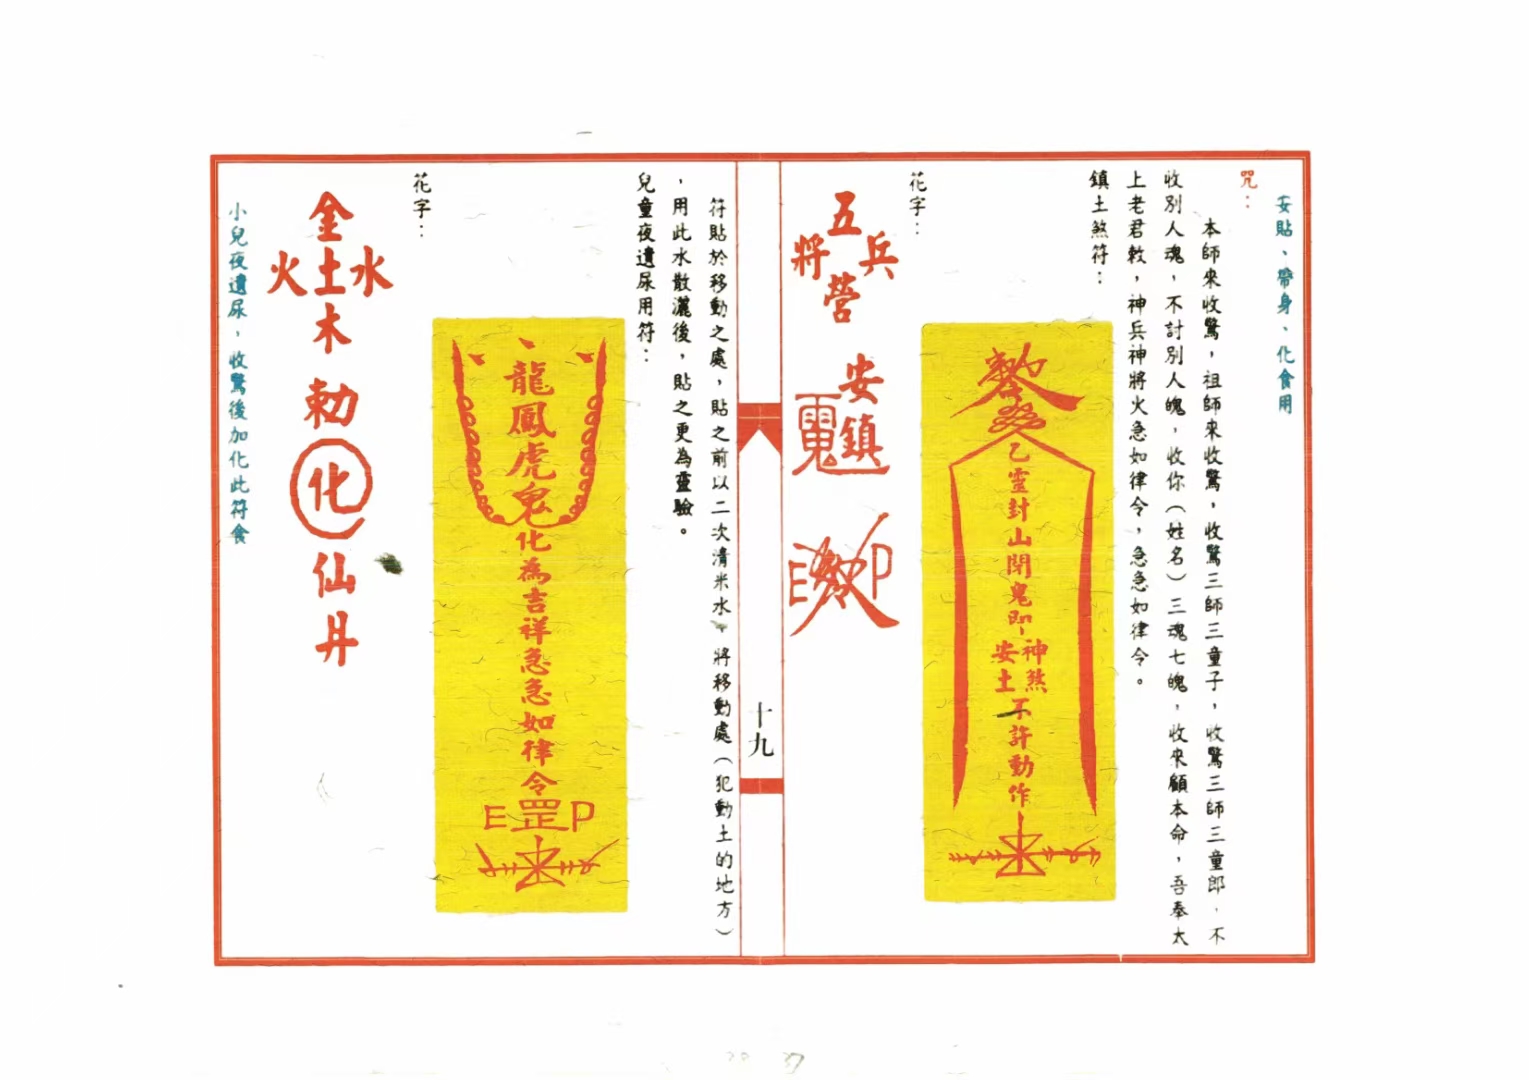 安貼、帶身、化食用
咒：
本師來收驚，祖師來收驚，收驚三師三童子，收驚三師三童郎，不
收別人魂，不討別人魄，收你（姓名）三魂七魄，收來顧本命，吾奉太
上老君敕，神兵神將火急如律令，急急如律令。
鎮土煞符：
乙靈封山閉鬼即
神煞
安土
不許動作
花字：
五
將兵
營
安
鎮
E P
十九
符貼於移動之處，貼之前以二次清米水，將移動處（犯動土的地方）
，用此水散灑後，貼之更為靈驗。
兒童夜遺尿用符：
龍鳳虎鬼化為吉祥急急如律令
E罡P
花字：
金
火土水
木
勅
化
仙
丹
小兒夜遺尿，收驚後加化此符食
37